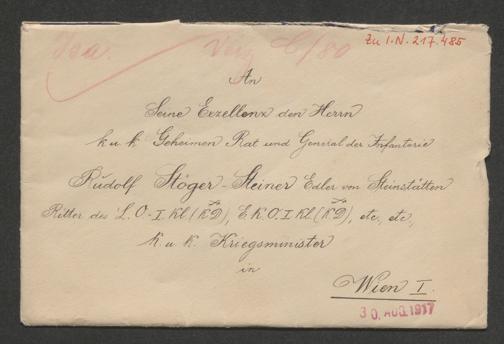 Zu I.N. 217.485
An
Seine Exzellenz den Herrn
k. u. k. Geheimen Rat und General der Infanterie
Rudolf Stöger-Steiner Edler von Steinstätten
Ritter des L.O-I. Kl. (KD), E.K.O. I. Kl. (KD), etc, etc,
k. u. k. Kriegsminister
in
Wien I.
30. AUG. 1917